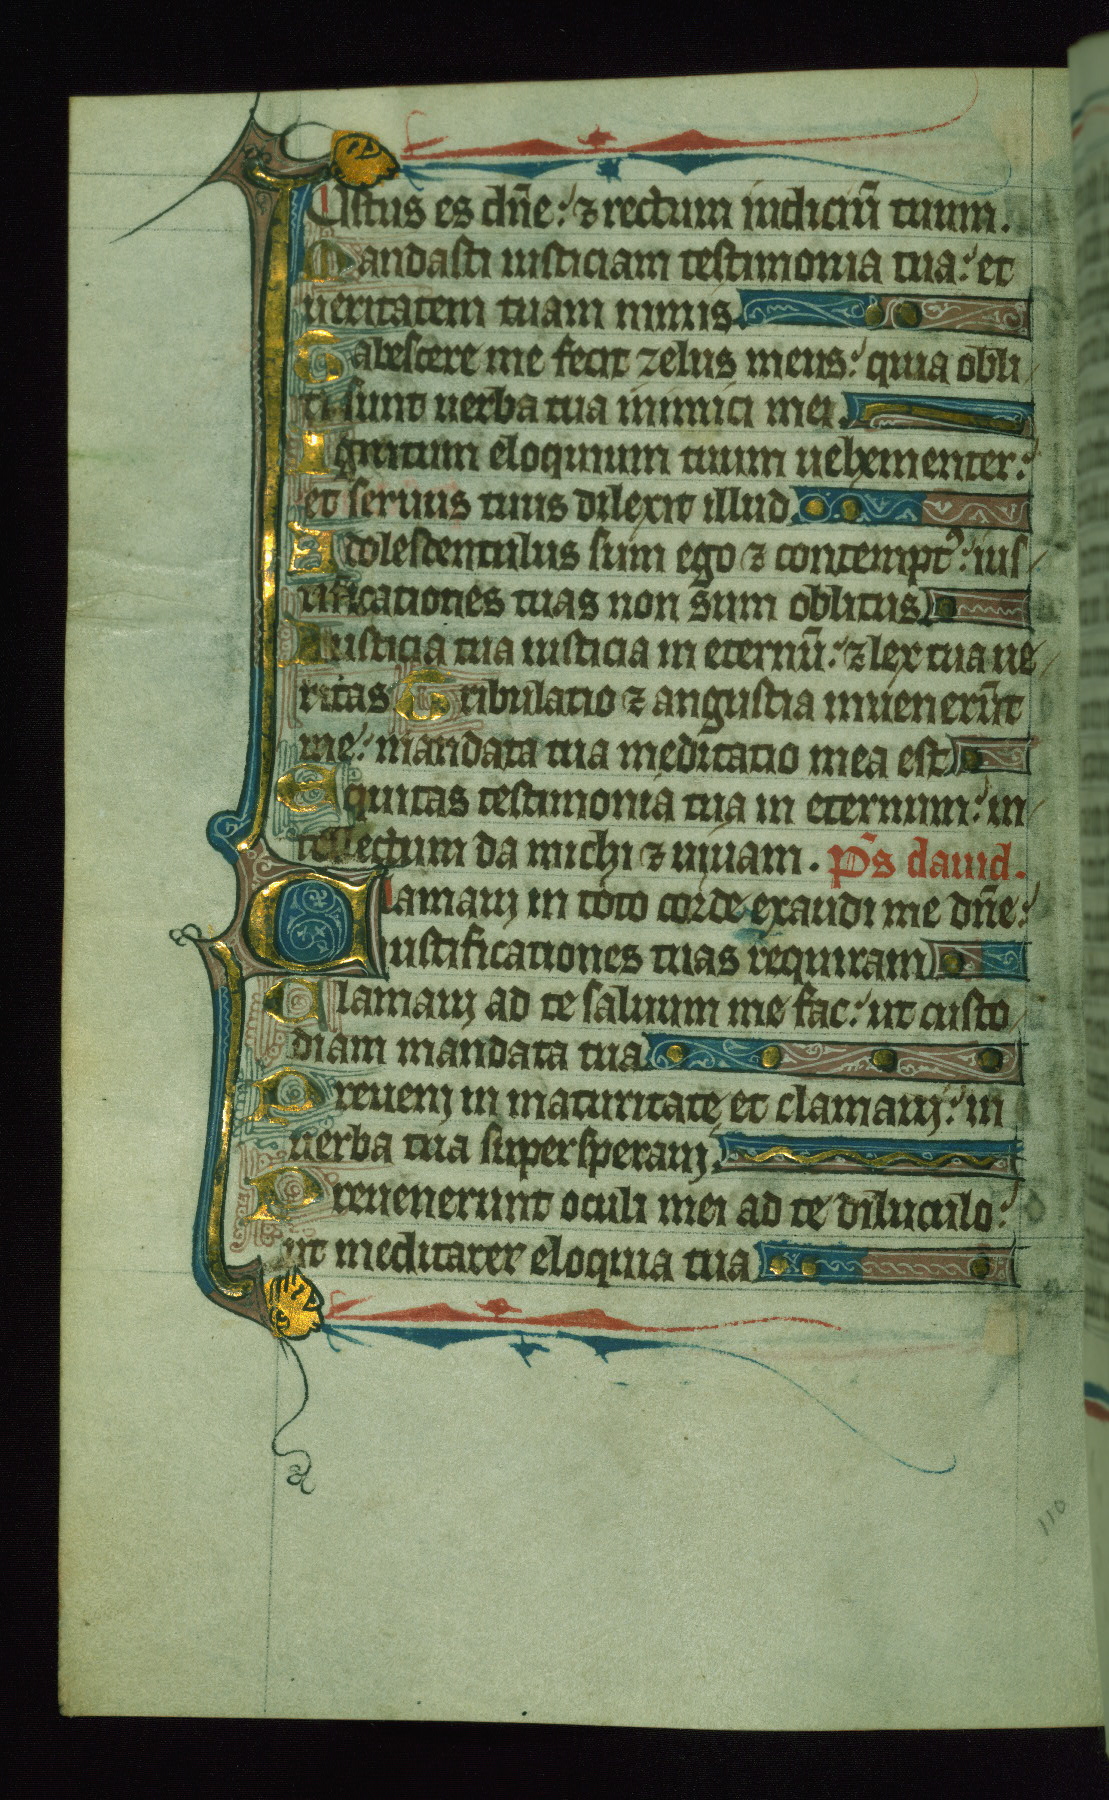 Iustus es dn̄e: ⁊ rectum iudiciū tuum.
Mandasti iusticiam testimonia tua: et
ueritatem tuam nimis.
Tabescere me fecit zelus meus: quia obli
ti sunt uerba tua inimici mei.
Ignitum eloquium tuum uehementer:
et seruus tuus dilexit illud.
Adolescentulus sum ego ⁊ contemptꝰ: ius
tificationes tuas non sum oblitus.
Iusticia tua iusticia in eternū: ⁊ lex tua ue
ritas Tribulatio ⁊ angustia inuenerūt
me: mandata tua meditatio mea est.
Equitas testimonia tua in eternum: in
tellectum da michi ⁊ uiuam. Ps̄ dauid.
Clamauj in toto corde exaudi me dn̄e:
iustificationes tuas requiram.
Clamauj ad te saluum me fac: ut custo
diam mandata tua.
Preuenj in maturitate et clamauj: in
uerba tua supersperauj.
Preuenerunt oculi mei ad te diluculo:
ut meditarer eloquia tua.
110